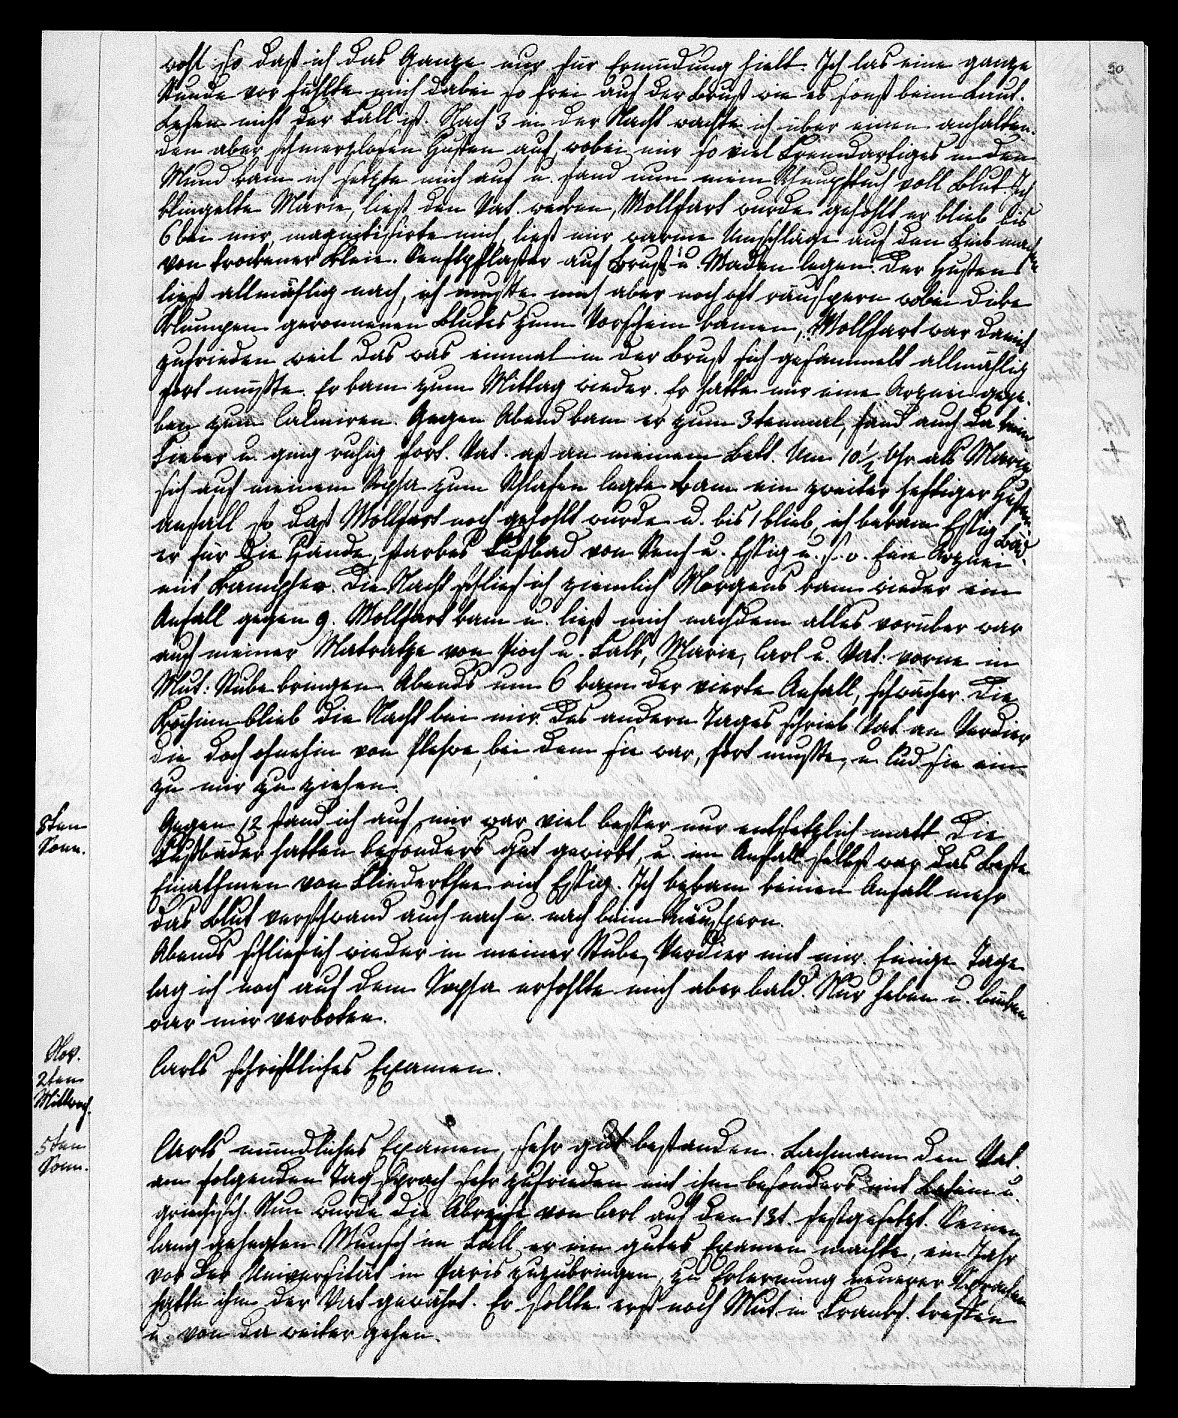 50
wohl so daß ich das Ganze nur für Ermüdung hielt. Ich las eine ganze
Stunde vor fühlte mich dabei so frei auf der Brust wie es sonst beim Laut-
Lesen nicht der Fall ist. Nach 3 in der Nacht wachte ich über einen anhalten-
den aber schmerzlosen Husten auf wobei mir so viel Fremdartiges in den
Mund kam ich setzte mich auf u. fand nun mein Schnupftuch voll Blut. Ich
klingelte Marie, ließ den Vat. wecken, Wollfart wurde geholt er blieb bis
6 bei mir, magnetisirte mich, ließ mir warme Umschläge auf den Leib machen
von trockener Kleie. Senfpflaster auf Brust u. Waden legen. Der Husten
ließ allmählig nach, ich mußte mich aber noch oft räuspern wobei dicke
Klumpen geronnenen Blutes zum Vorschein kamen, Wollfart war damit
zufrieden weil das was einmal in der Brust sich gesammelt allmählig
fort müßte. Er kam zum Mittag wieder. Er hatte mir eine Arznei gege-
ben zum Calmiren. Gegen Abend kam er zum 3tenmal, fand auch da kein
Fieber u. ging ruhig fort. Vat. aß an meinem Bett. Um 10½ Uhr als Marie
sich auf meinem Sopha zum Schlafen legte kam ein zweiter heftiger Husten-
anfall so daß Wollfart noch geholt wurde u. bis 1 blieb, ich bekam Essig Bäd-
er für die Hände, starkes Fußbad von Senf u. Essig u. s. w. Eine Arznei
mit Kampher. Die Nacht schlief ich ziemlich Morgens kam wieder ein
Anfall gegen 9. Wollfart kam u. ließ mich nachdem alles vorüber war
auf meiner Matratze von Koch u. Falk, Marie, Carl u. Vat. vorne in
Mut: Stube bringen Abends um 6 kam der vierte Anfall, schwächer. Die
Köchinn blieb die Nacht bei mir. Des andern Tages schrieb Vat. an Verdier
die doch ohnehin von Plehwe, bei dem sie war, fort mußte, u. lud sie ein
zu mir zu ziehen.
8ten
Sonn.
Gegen 12 stand ich auf, mir war viel besser nur entsetzlich matt. Die
Fußbäder hatten besonders gut gewirkt, u. im Anfall selbst war das Beste
Einathmen von Fliederthee mit Essig. Ich bekam keinen Anfall mehr
das Blut verschwand auch nach u. nach beim Räuspern.
Abends schlief ich wieder in meiner Stube, Verdier mit mir. Einige Tage
lag ich noch auf dem Sopha erholte mich aber bald. Nur heben u. bücken
war mir verboten.
Nov.
2ten
Mittwoch.
Carls schriftliches Examen.
5ten
Sonn.
Carls mündliches Examen, sehr gut bestanden. Lachmann den Vat.
am folgenden Tag sprach sehr zufrieden mit ihm besonders mit Latein u.
griechisch. Nun wurde die Abreise von Carl auf den 13t. festgesetzt. Seinen
lang gehegten Wunsch im Fall er ein gutes Examen machte, ein Jahr
vor der Universität in Paris zuzubringen, zu Erlernung neuerer Sprachen
hatte ihm der Vat gewährt. Er sollte erst noch Mut in Frankf. treffen
u. von da weiter gehen.